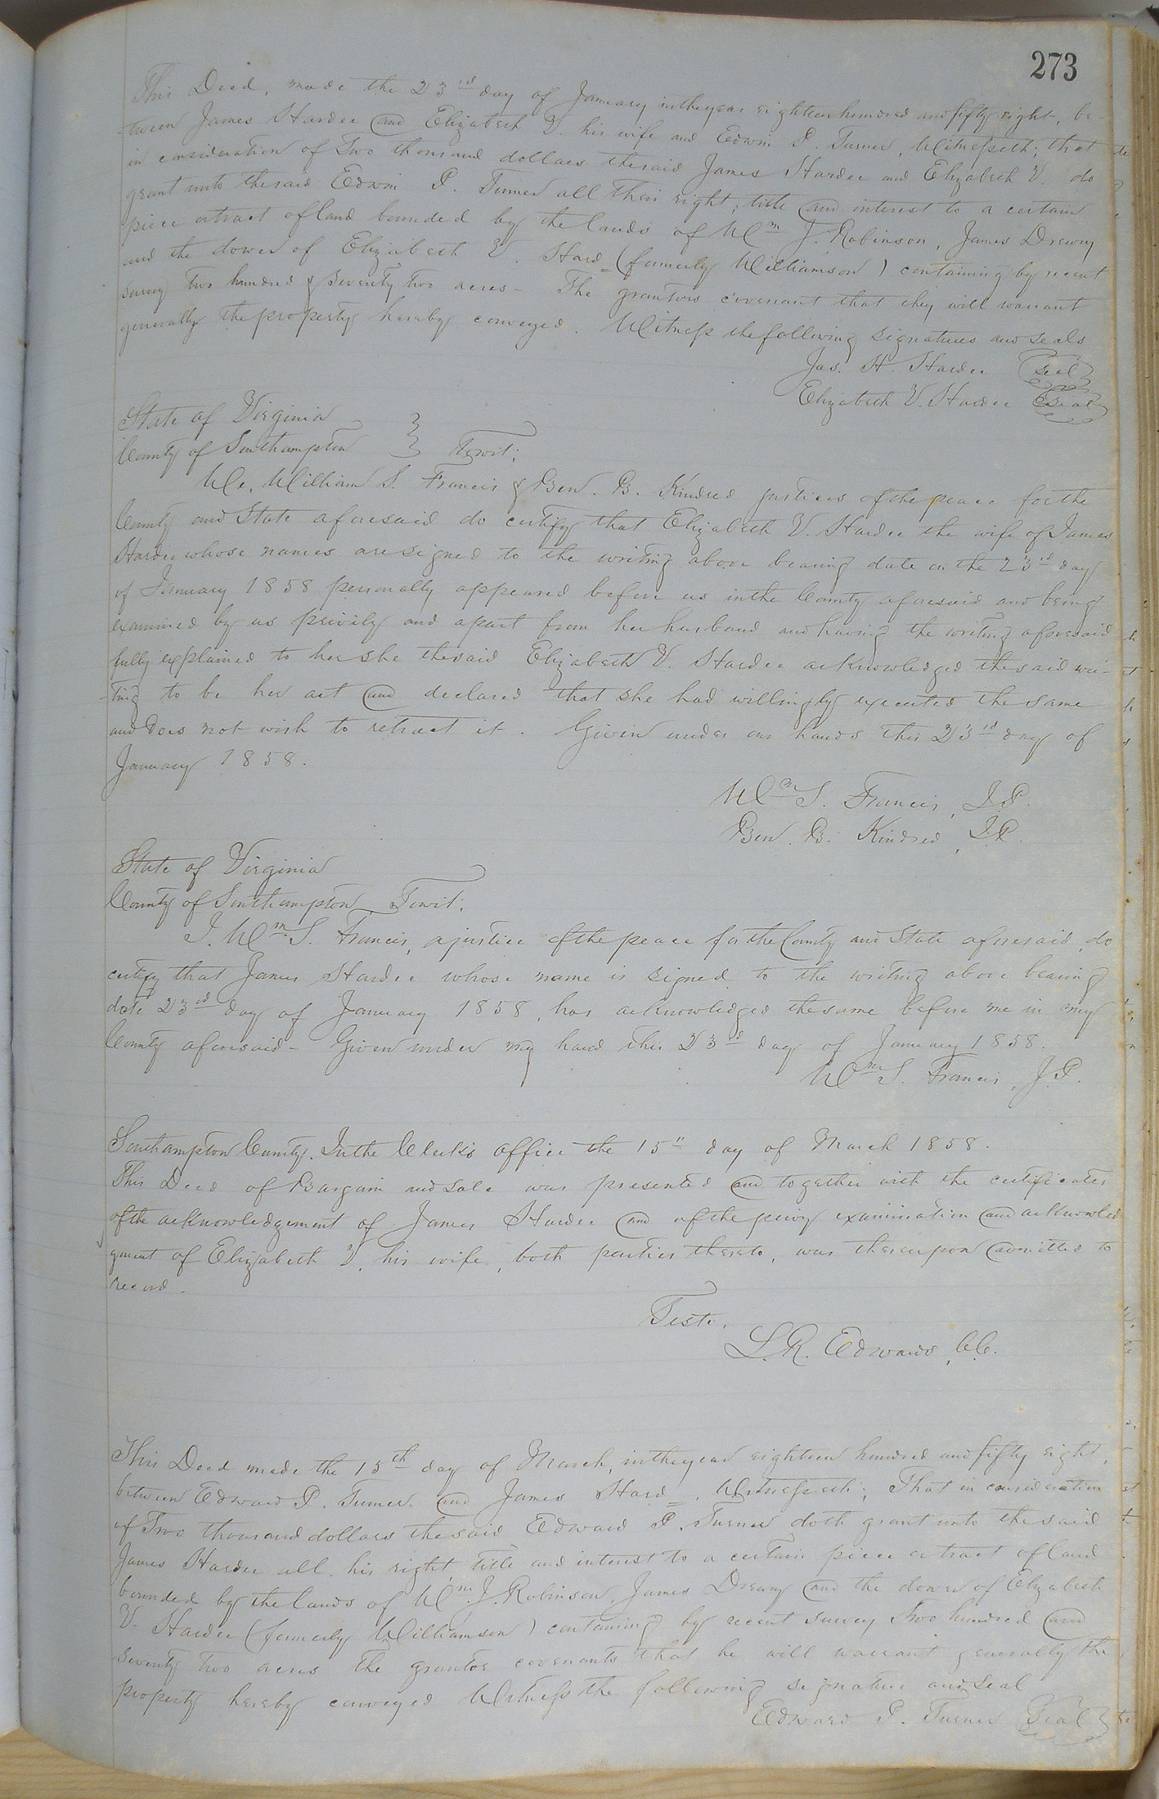 273
This Deed, made the 23rd day of January in the year eighteen hundred and fifty eight, be-
tween James Hardee and Elizabeth V. his wife and Edwin P. Turner, Witnesseth; that
in consideration of Two thousand dollars the said James Hardee and Elizabeth V. do
grant unto the said Edwin P. Turner all their right, title and interest to a certain
piece or tract of land bounded by the lands of Wm J. Robinson, James Drewry
and the dower of Elizabeth V. Hard= (formerly Williamson) containing by recent
survey two hundred & seventy two acres - The grantors covenant that they will warrant
generally the property hereby conveyed. Witness the following signatures and seals
Jas. H. Hardee Seal
Elizabeth V. Hardee Seal
State of Virginia
County of Southampton } Towit:
We, William S. Francis & Ben. B. Kindred justices of the peace for the
County and State aforesaid do certify that Elizabeth V. Hardee the wife of James
Hardee whose names are signed to the writing above bearing date on the 23rd day
of January 1858 personally appeared before us in the County aforesaid and being
examined by us privily and apart from her husband and having the writing aforesaid
fully explained to her she the said Elizabeth V. Hardee acknowledged the said wri-
-ting to be her act and declared that she had willingly executed the same
and does not wish to retract it. Given under our hands this 23rd day of
January 1858.
Wm S. Francis, J.P.
Ben. B. Kindred, J.P.
State of Virginia
County of Southampton Towit:
I, Wm S. Francis, a justice of the peace for the County and State aforesaid, do
certify that James Hardee whose name is signed to the writing above bearing
date 23rd day of January 1858, has acknowledged the same before me in my
County aforesaid - Given under my hand this 23rd day of January 1858.
Wm S. Francis, J.P.
Southampton County. In the Clerk's office the 15" day of March 1858.
This Deed of Bargain and Sale was presented and together with the certificates
of the acknowledgement of James Hardee and of the privy examination and acknowled
gment of Elizabeth V, his wife, both parties thereto, was thereupon admitted to
record.
Teste,
L. R. Edwards, C.C.
This Deed made the 15th day of March, in the year eighteen hundred and fifty eight,
between Edward P. Turner and James Hard=, Witnesseth; That in consideration
of Two thousand dollars the said Edward P. Turner doth grant unto the said
James Hardee all his right title and interest to a certain piece or tract of land
bounded by the lands of Wm. J. Robinson, James Drewry and the dower of Elizabeth
V. Hardee (formerly Williamson) containing by recent survey Two hundred and
Seventy two acres the grantor covenants that he will warrant generally the
property hereby conveyed Witness the following signature and seal
Edward P. Turner Seal